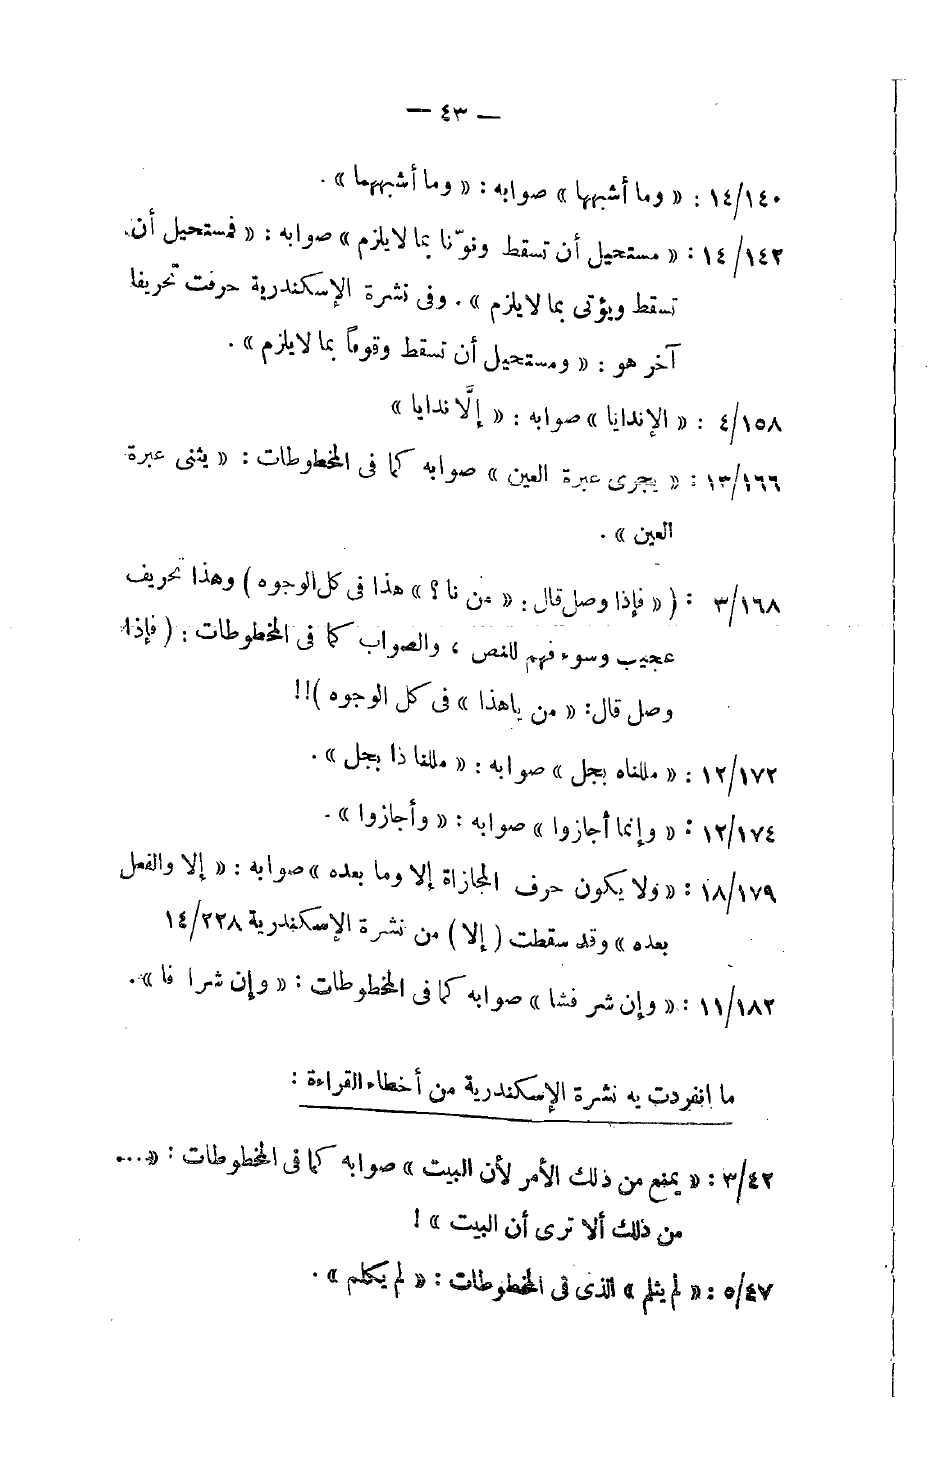 — ٤٣ —
١٤/١٤٠ : « وما أشبهها » صوابه : « وما أشبههما » .
١٤/١٤٢ : « مستحيل أن تسقط ونوّنا بما لا يلزم » صوابه : « فمستحيل أن
تسقط ويؤتى بما لا يلزم » . وفى نشرة الإسكندرية حرفت تحريفا
آخر هو : « ومستحيل أن تسقط وقوماً بما لا يلزم » .
٤/١٥٨ : « الإندايا » صوابه : « إلَّا ندايا »
١٣/١٦٦ : « يجرى عبرة العين » صوابه كما فى المخطوطات : « يثنى عبرة
العين » .
٣/١٦٨ : ( « فإذا وصل قال : « من نا ؟ » هذا فى كل الوجوه ) وهذا تحريف
عجيب وسوء فهم للنص ، والصواب كما فى المخطوطات : ( فإذا
وصل قال : « من ياهذا » فى كل الوجوه )!!
١٢/١٧٢ : « مللناه بجل » صوابه : « مللنا ذا بجل » .
١٢/١٧٤ : « وإنما أجازوا » صوابه : « وأجازوا » .
١٨/١٧٩ : « ولا يكون حرف المجازاة إلا وما بعده » صوابه : « إلا والفعل
بعده » وقد سقطت ( إلا ) من نشرة الإسكندرية ١٤/٢٢٨
١١/١٨٢ : « وإن شر فشا » صوابه كما فى المخطوطات : « وإن شرا فا » .
ما انفردت به نشرة الإسكندرية من أخطاء القراءة :
٣/٤٢ : « يمنع من ذلك الأمر لأن البيت » صوابه كما فى المخطوطات : « ...
من ذلك ألا ترى أن البيت » !
٥/٤٧ : « لم يثلم » الذى فى المخطوطات : « لم يكلم » .